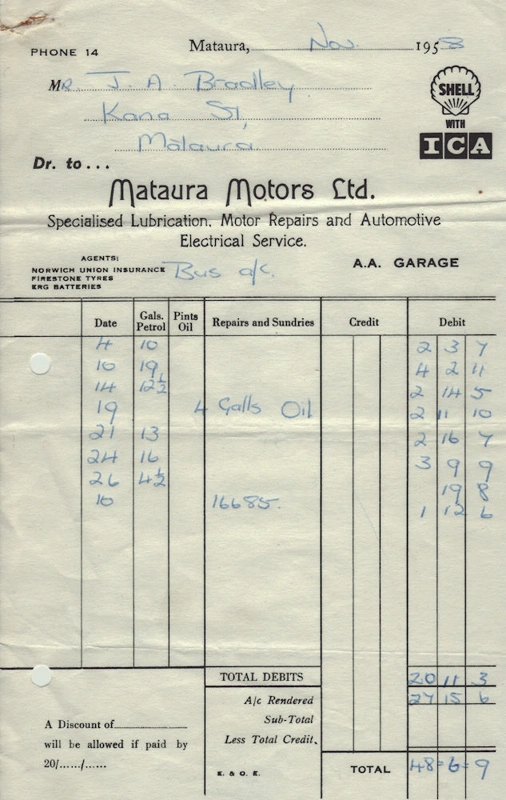 PHONE 14
Mataura, Nov. 1958
MR. J. A. Bradley
Kana St,
Mataura
SHELL
WITH
ICA
Dr. to...
Mataura Motors Ltd.
Specialised Lubrication, Motor Repairs and Automotive
Electrical Service.
AGENTS:
NORWICH UNION INSURANCE
FIRESTONE TYRES
ERG BATTERIES
Bus a/c.
A.A. GARAGE
Date Gals. Petrol Pints Oil Repairs and Sundries Credit Debit
4 10 2 3 7
10 19 4 2 11
14 12½ 2 14 5
19 4 Galls Oil 2 11 10
21 13 2 16 7
24 16 3 9 9
26 4½ 19 8
10 16685. 1 12 6
TOTAL DEBITS 20 11 3
A/c Rendered 27 15 6
Sub-Total
Less Total Credit.
A Discount of
will be allowed if paid by
20/....../......
E. & O. E.
TOTAL 48=6=9